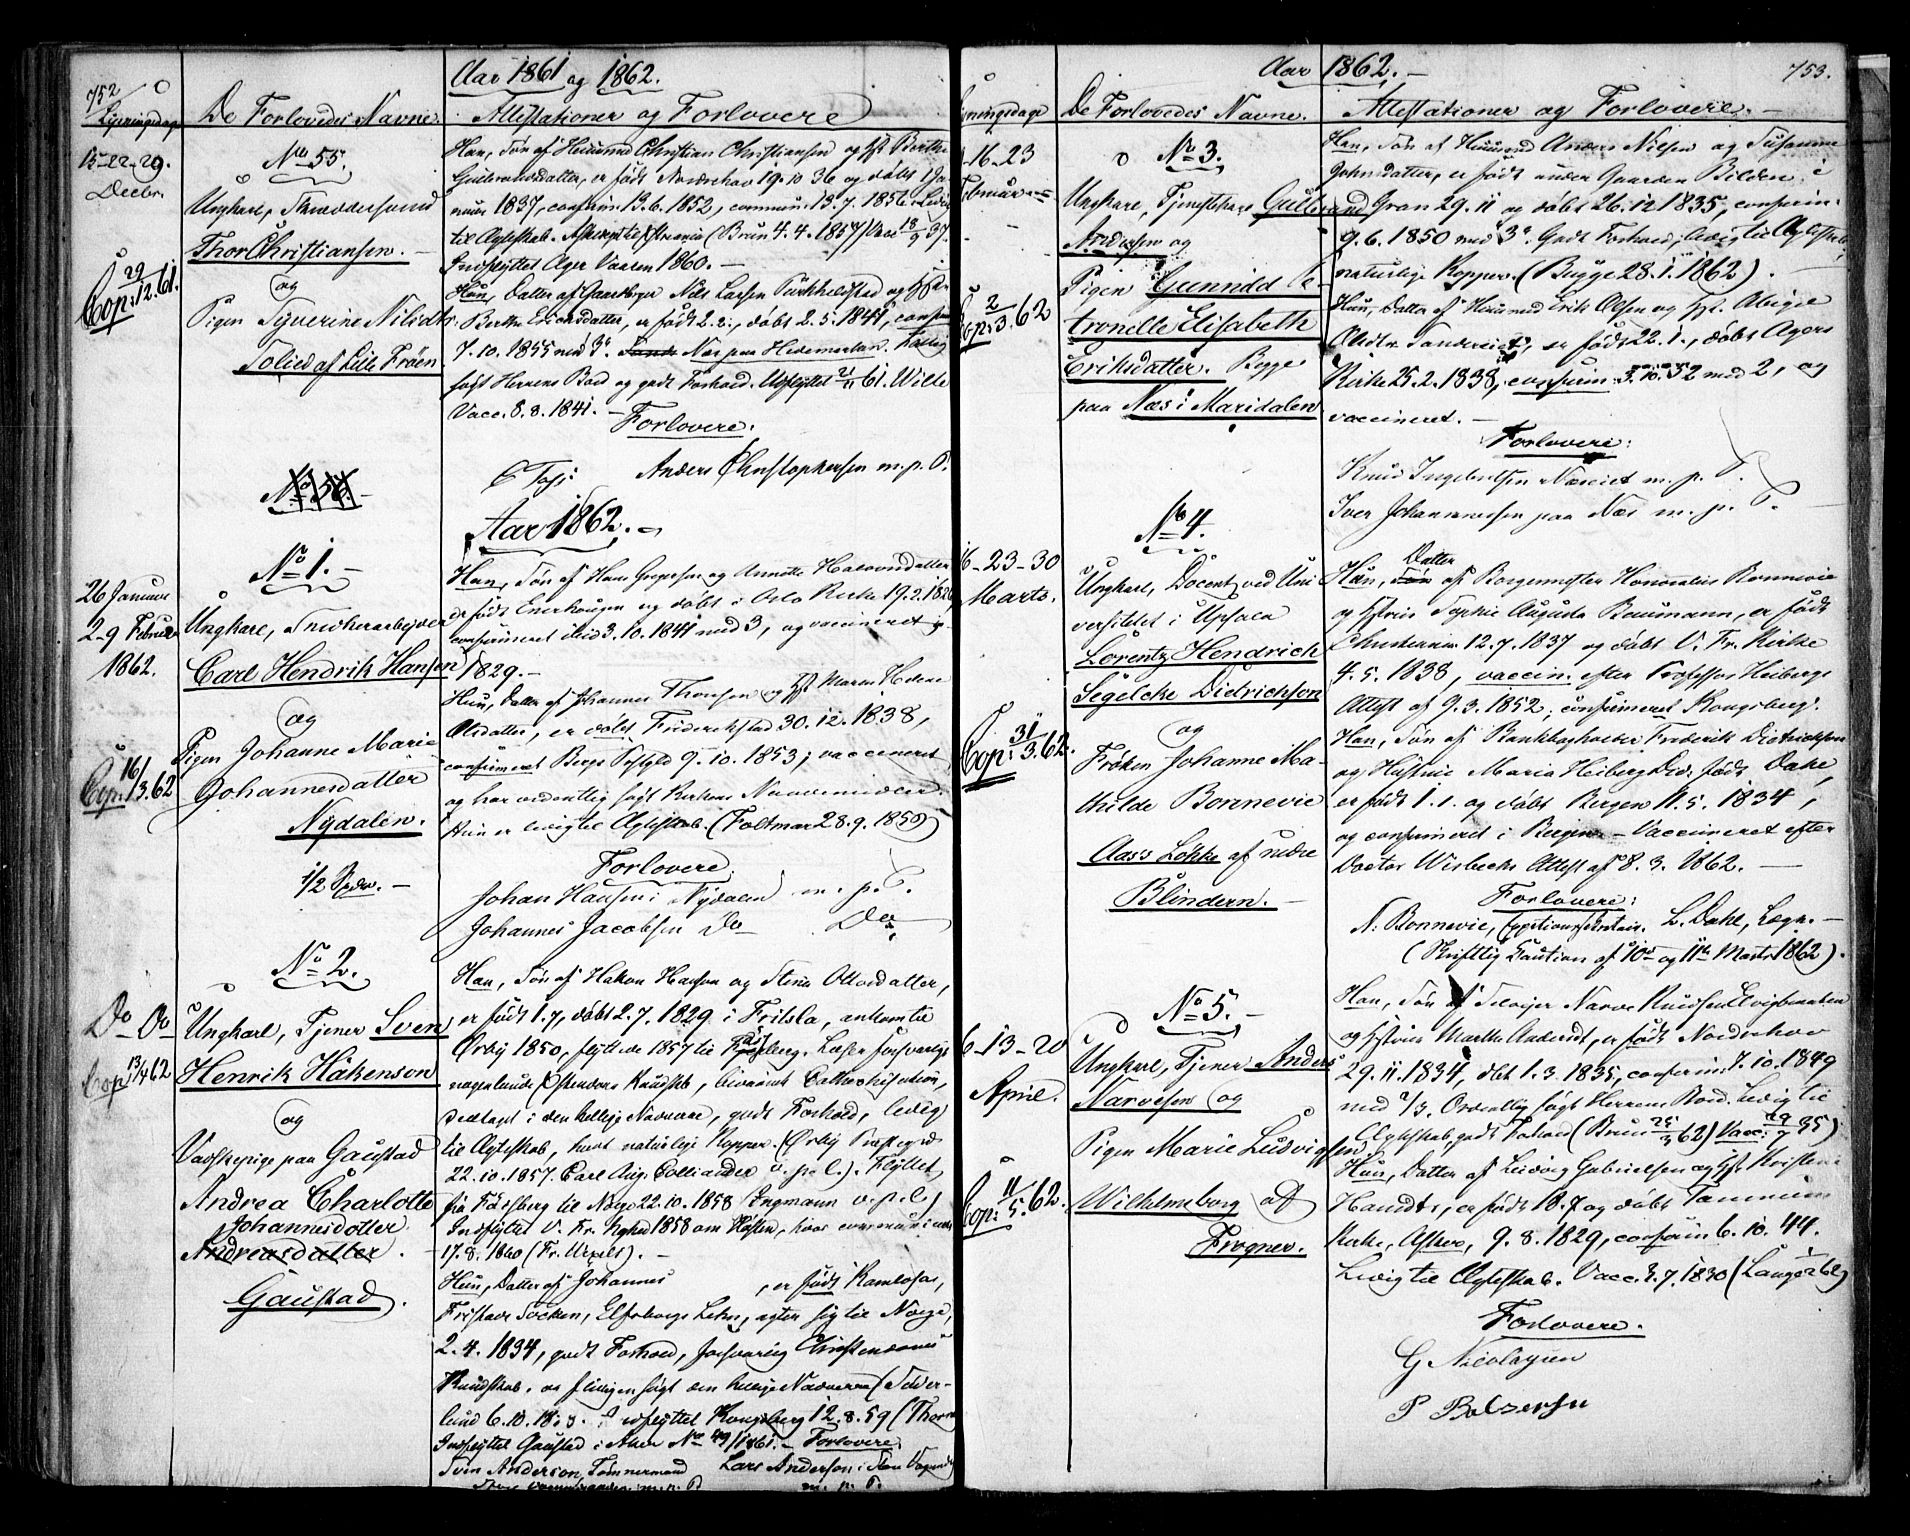 752
Aar 1861 og 1862.
Lysningsdage
De Forlovedes Navne.
Attestationer og Forlovere
15-22-29.
Decbr.
No 55.
Ungkarl, Skræddersvend
Thor Christiansen.
og
Pigen Syverine Nilsdtr.
Solied af Lille Frøen
Cop: 29/12.61.
Han, Søn af Huusmd Christian Christiansen og Hst Berthe
Gulbrandsdatter, er født Norderhov 19.10.36 og døbt 1 Ja-
nuar 1837, confirm. 13.6.1852, commun. 13.7.1856. Ledig
til Ægteskab. (Bruun 4.4.1857) Vacc 13/9 37.
Indflyttet Ager Vaaren 1860.
Hun, Datter af Gaardbrger Nils Larsen og
Berthe Ericksdatter, er født 2.2., døbt 2.5.1841, confirm
7.10.1855 med 3. Næs paa Hedemarken.
søgt Herrens Bord og godt Forhold. Udflyttet 21/11 61. Wille
Vacc. 8.8.1841.
Forlovere.
Anders Christophersen m.p.P.
No 56.
Aar 1862.
26 Januar
2-9 Februar
1862.
No 1.
Ungkarl, Snedkerarbejder
Carl Hendrik Hansen
og
Pigen Johanne Marie
Johannesdatter
Nydalen.
1/2 Spdr.
Cop: 16/3.62
Han, Søn af Hans Gregersen og Annette Halvorsdatter
er født Enerhougen og døbt i Oslo Kirke 19.2.1826
confirmeret ibid 3.10.1841 med 3, og vaccineret
1829.
Hun, Datter af Johannes Thonsen og Hst Maren Helene
Olsdatter, er døbt Frideriksstad 30.12.1838,
confirmeret Berge 9.10.1853, vaccineret
og har ordentlig søgt Kirkens Naademidler.
Hun er ledig til Ægteskab. (Foltmar 28.9.1859)
Forlovere.
Johan Hansen i Nydalen m.p.P.
Johannes Jacobsen Do Do
No 2.
Do Do
Ungkarl, Tjener Sven
Henrik Håkenson
og
Vadskepige paa Gaustad
Andrea Charlotte
Johannesdotter
Andreasdatter.
Gaustad.
Cop 13/4 62
Han, Søn af Hakon Hanson og Stina Ottosdatter,
er født 1.7, døbt 2.7.1829 i Fritsla, ankomtil
Örby 1850, flyttede 1857 til
til Ægteskab, havt naturlige Kopper. (Örby
22.10.1857. Carl Aug. Colliander v.p.l.). Flyttet
fra til Norge 22.10.1858 Engmann v.p.l.)
Indflyttet V. Fr. 1858 om Høsten, hvor
17.8.1860 (Fr. Wexels).
Hun, Datter af Johannes , er født Ramlosas,
Fristads Socken, Elfsborgs Lehn, agter sig til Norge,
2.4.1834, godt Forhold, forsvarlig Christendoms
Kundskab, og flittigen søgt den hellige Nadverd
udflyttet Kongsberg 12.8.59
Indflyttet Gaustad i Aker No 49/1861. Forlovere.
Sven Anderson, Tømmermand
Lars Anderson
m.p.P.
753.
Aar 1862.
Lysningsdage
De Forlovedes Navne.
Attestationer og Forlovere.
16-23
Februar
No 3.
Ungkarl, Tjenestekarl Gulbrand
Andersen og
Pigen Gunnild Pe-
tronelle Elisabeth
Eriksdatter. Begge
paa Næs i Maridalen
Cop: 2/3.62
Han, Søn af Huusmd Anders Nilsen og Susanne
Johnsdatter, er født under Gaarden Bilden i
Gran 29.11 og døbt 26.12.1835, confirm.
9.6.1850 med 3. Godt Forhold, ledig til Ægteskab,
naturlige Kopper. (Bugge 28.1.1862).
Hun, Datter af Huusmd Erik Olsen og Hst.
Olsdtr, er født 22.1., døbt Agers
Kirke 25.2.1838, confirm. 3.10.52 med 2, og
vaccineret.
Forlovere:
Knud Ingebretsen m.p.P.
Iver Johannesen paa Næs m.p.P.
16-23-30
Marts.
No 4.
Ungkarl, Docent ved Uni-
versitetet i Upsala
Lorentz Hendrich
Segelcke Dietrichson
og
Frøken Johanne Ma-
thilde Bonnevie
Aass Løkke af nedre
Blindern.
Cop: 31/3.62.
Datter
Hun, Søn af Borgemester Honoratus Bonnevie
og Hstrie Sophie Augusta Baumann, er født
Christiania 12.7.1837 og døbt V. Fr. Kirke
4.5.1838, vaccin. efter Professor Heibergs
Attest af 9.3.1852, confirmeret Kongsberg.
Han, Søn af Bankbogholder Frederik Dietrichson
og Hustrue Maria Heiberg Die: født Dahl,
er født 1.1. og døbt Bergen 11.5.1834,
og confirmeret i Bergen. Vaccineret efter
Doctor Wisbechs Attest af 8.3.1862.
Forlovere:
N. Bonnevie, Expeditionssecretair. L. Dahl, Læge.
(Skriftlig Caution af 10de og 11te Marts 1862).
6-13-20
April.
No 5.
Ungkarl, Tjener Anders
Narvesen og
Pigen Marie Ludvigsen
Wilhelmsborg af
Frogner.
Cop: 11/5.62.
Han, Søn af Narve Knudsen
og Hstrue Marthe Andersdt, er født Norderhov
29.11.1834, dbt 1.3.1835, confirm. 7.10.1849
med 2/3. Ordentlig søgt Herrens Bord. Ledig til
Ægteskab, godt Forhold (Bruun 25/3 62) Vacc. 29/9 35)
Hun, Datter af Ludvig Gabrielsen og Hst Kirsten
Handt, er født 18.7 og døbt Tanum
Kirke, Asker, 9.8.1829, confirm 6.10.44.
Ledig til Ægteskab. Vacc. 2.7.1830
Forlovere.
G Nicolaysen
P Balzersen